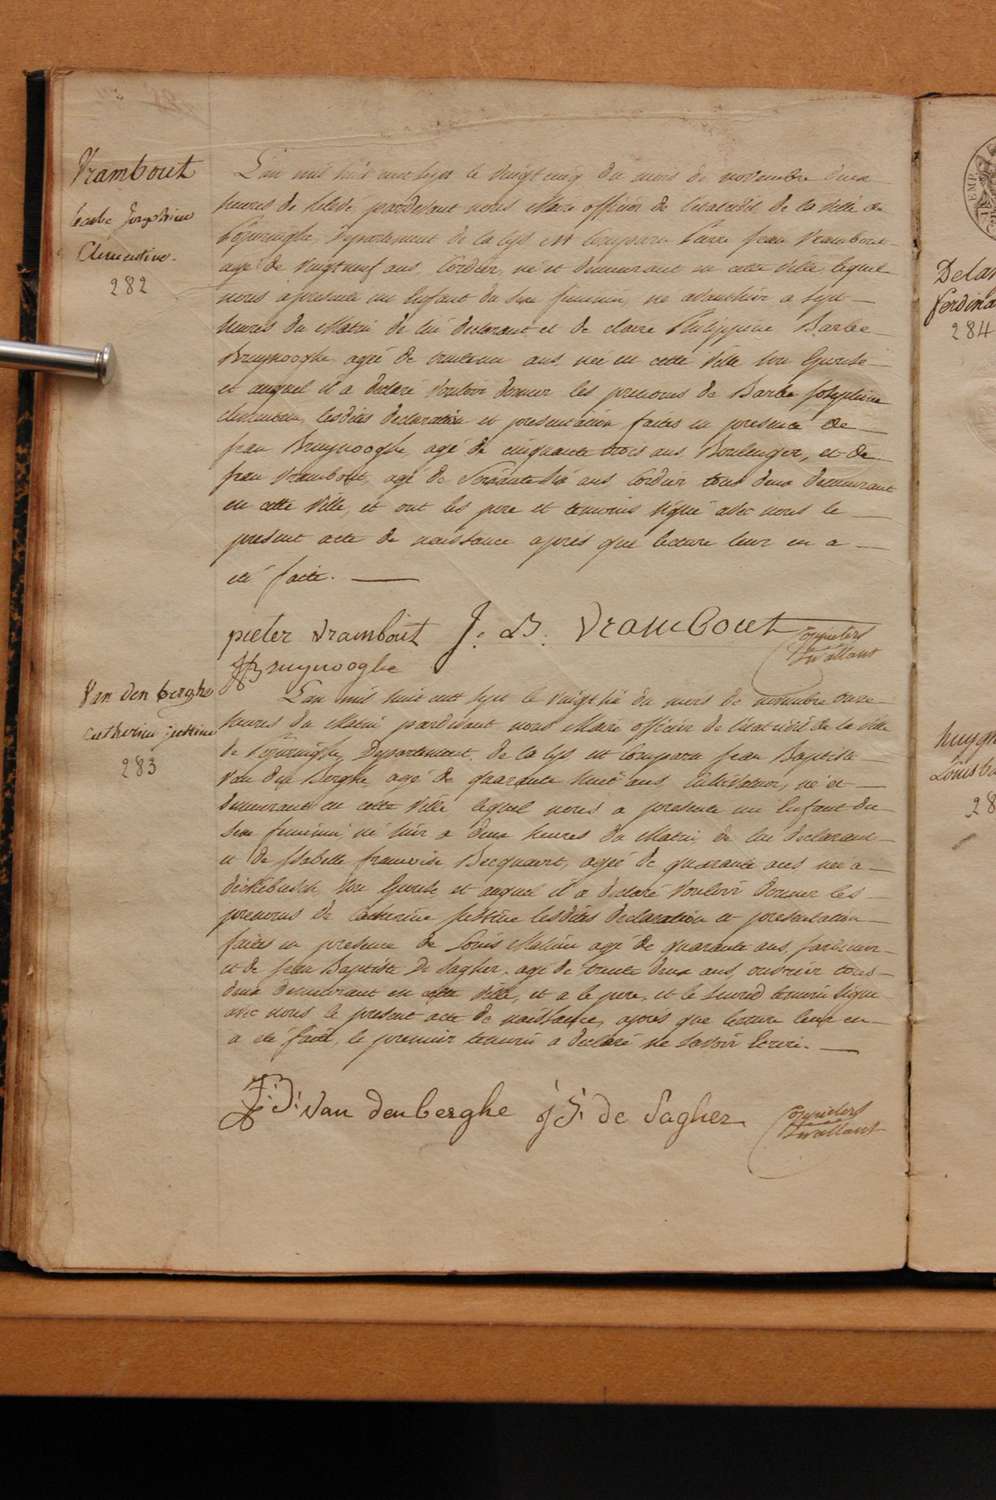 Vrambout
barbe Josephine
Clementine.
282
L'an mil huit cent sept le vingt cinq du mois de novembre onze
heures de pardevant nous Maire officier de l'etat civil de la ville de
Poperinghe, Departement de la Lys est comparu Pierre Jean Vrambout
agé de vingt neuf ans, Cordier, né et demeurant en cette ville, lequel
nous a presenté un Enfant du sexe feminin, né avanthier a sept
heures du Matin de lui declarant et de claire Philippine Barbe
Bruynooghe agée de ans, née en cette Ville son Epouse
et auquel il a declaré vouloir donner les prenoms de Barbe Josephine
clementine, lesdites declaration et presentation faites en presence de
jean Bruynooghe, agé de cinquante trois ans, Boulenger, et de
jean Vrambout, agé de Soixante dix ans Cordier tous deux demeurant
en cette Ville, et ont les pere et temoins signé avec nous le
present acte de naissance apres que lecture leur en a
eté faite.
pieter vrambout J. B. Vrambout
Bruynooghe
Van den berghe
catherine justine
283
L'an mil huit cent sept le vingt six du mois de novembre onze
heures du Matin pardevant nous Maire officier de l'etat civil de la ville
de Poperinghe, Departement de la Lys est Comparu Jean Baptiste
Van den Berghe, agé de quarante huit ans, Cultivateur, né et
demeurant en cette Ville lequel nous a presenté un Enfant du
sexe feminin né hier a deux heures du Matin de lui declarant
et de Isabelle francoise Becquaert, agée de quarante ans née a
dickebusch, son Epouse et auquel il a declaré vouloir donner les
prenoms de Catherine Justine lesdites declaration et presentation
faites en presence de Louis Mahieu agé de quarante ans,
et de Jean Baptiste De Sagher, agé de trente deux ans, ouvrier tous
deux demeurant en cette Ville, et a le pere, et le second temoin signé
avec nous le present acte de naissance, apres que lecture leur en
a eté faite, le premier temoin a declaré ne savoir Ecrire.
J: B: van den berghe j: b: de Sagher
Delan
ferdina
284
huygh
Louis ba
28